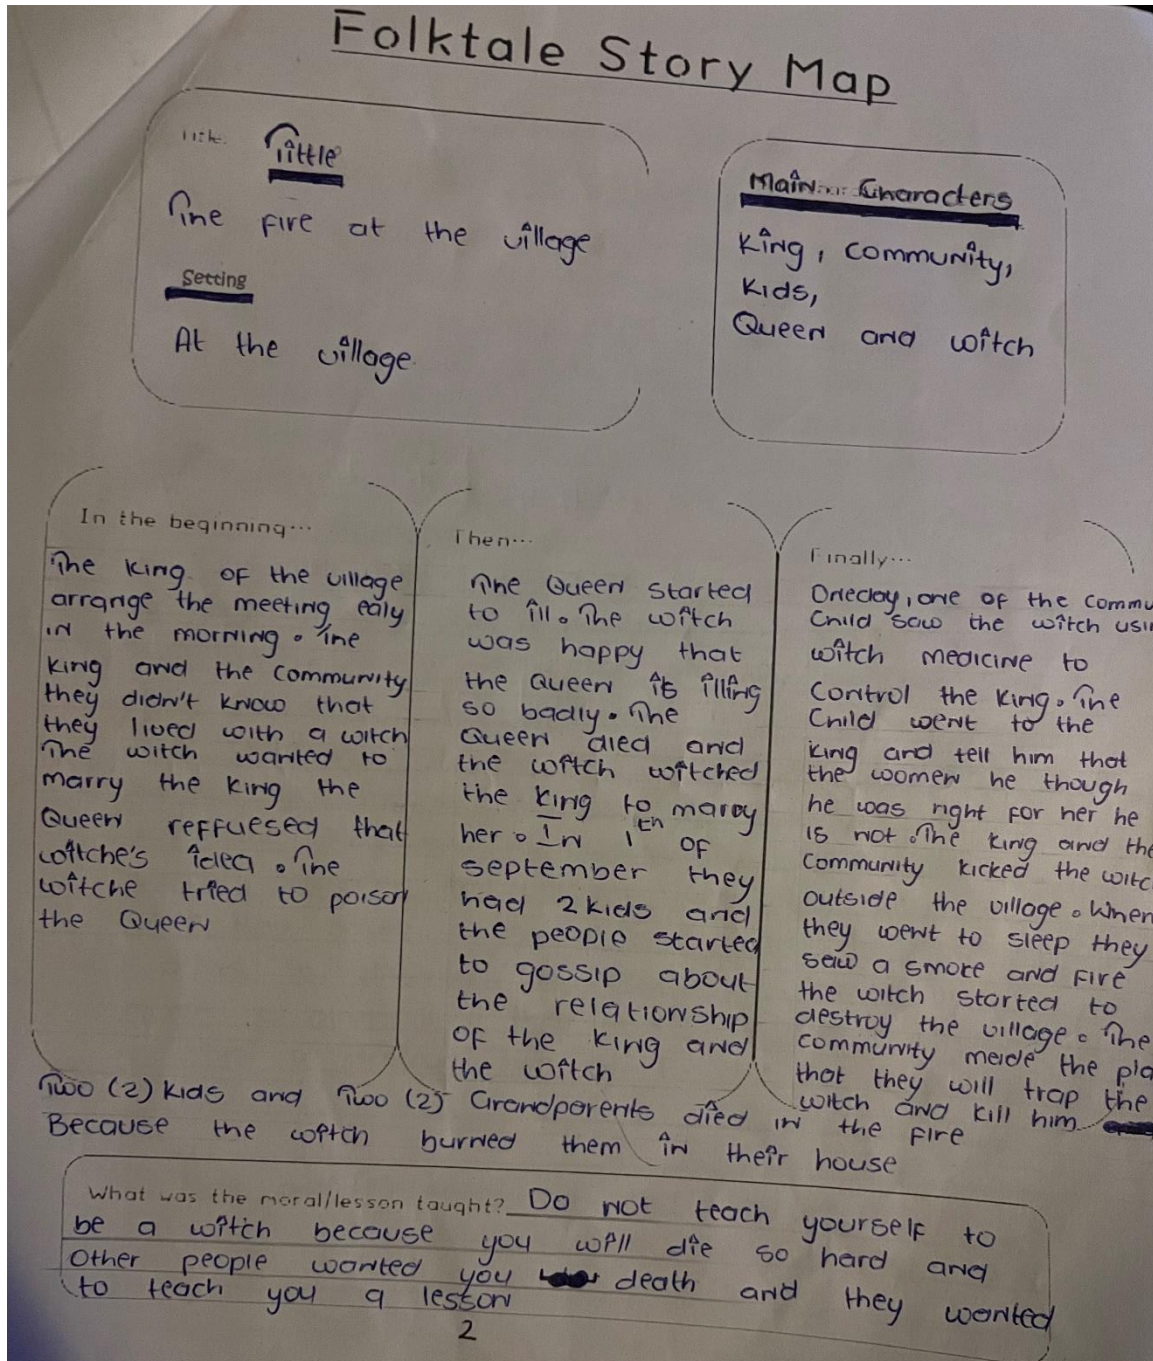 Folktale Story Map
Title:
Tittle
The fire at the village
Setting
At the village.
Main Characters
King, community,
Kids,
Queen and witch
In the beginning...
The king of the village
arrange the meeting ealy
in the morning. The
king and the community
they didn't know that
they lived with a witch
The witch wanted to
marry the king the
Queen reffuesed that
witche's idea. The
witche tried to poison
the Queen
Then...
The Queen started
to ill. The witch
was happy that
the Queen is illing
so badly. The
Queen died and
the witch witched
the king to marry
her. In 1th of
september they
had 2 kids and
the people started
to gossip about
the relationship
of the king and
the witch
Finally...
Oneday, one of the commu
Child saw the witch usin
witch medicine to
control the king. The
Child went to the
king and tell him that
the women he though
he was right for her he
is not. The king and the
community kicked the witc
outside the village. When
they went to sleep they
saw a smoke and fire
the witch started to
destroy the village. The
community made the pla
that they will trap the
witch and kill him
Two (2) kids and Two (2) Grandparents died in the fire
Because the witch burned them in their house
What was the moral/lesson taught? Do not teach yourself to
be a witch because you will die so hard and
Other people wanted you death and they wanted
to teach you a lesson
2